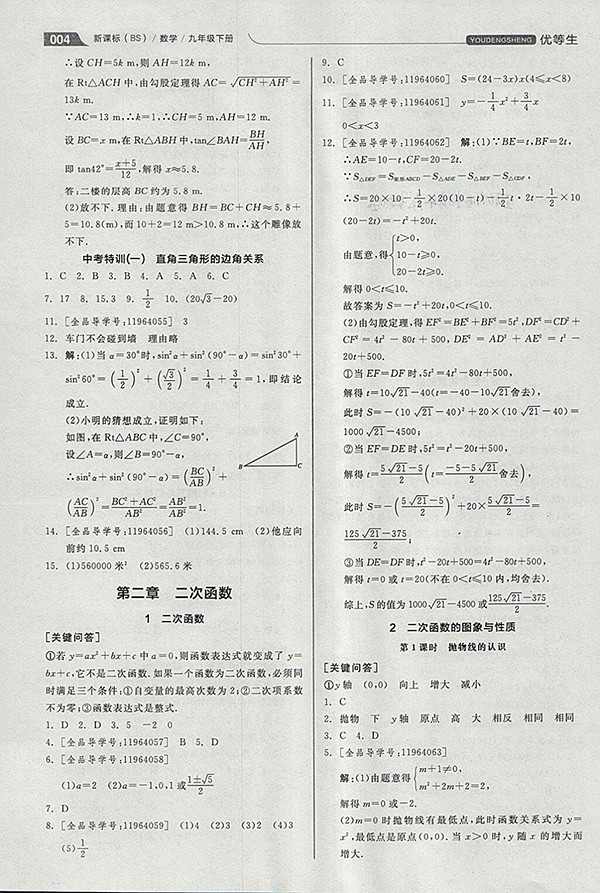 004 新课标(BS)/数学/九年级下册
YOUDENGSHENG 优等生
∴设 CH=5k m,则 AH=12k m,
在 Rt△ACH 中,由勾股定理得 AC=√(CH²+AH²)=
13k m.
∵AC=13 m,∴k=1,∴CH=5 m,AH=12 m.
设 BC=x m,在 Rt△ABH 中,tan∠BAH=BH/AH,
即 tan42°=(x+5)/12,解得 x≈5.8.
答:二楼的层高 BC 约为 5.8 m.
(2)放不下. 理由:由题意得 BH=BC+CH≈5.8+
5=10.8(m),而 10+2=12 m>10.8 m,∴这个雕像放
不下.
中考特训(一) 直角三角形的边角关系
1. C 2. B 3. B 4. A 5. A 6. C
7. 17 8. 15.3 9. 1/2 10. (20√3-20)
11. [全品导学号:11964055] 3
12. 车门不会碰到墙 理由略
13. 解:(1)当 α=30°时,sin²α+sin²(90°-α)=sin²30°+
sin²60°=(1/2)²+(√3/2)²=1/4+3/4=1,即结论
成立.
(2)小明的猜想成立,证明如下:
如图,在 Rt△ABC 中,∠C=90°,
设∠A=α,则∠B=90°-α,
∴sin²α+sin²(90°-α)=(BC/AB)²+
(AC/AB)²=(BC²+AC²)/AB²=AB²/AB²=1.
A
B C
14. [全品导学号:11964056] (1)144.5 cm (2)他应向
前约 10.5 cm
15. (1)560000 米² (2)565.6 米
第二章 二次函数
1 二次函数
[关键问答]
①若 y=ax²+bx+c 中 a=0,则函数表达式就变成了 y=
bx+c,它不是二次函数. 如果一个函数为二次函数,必须同
时满足三个条件:①自变量的最高次数为 2;②二次项系数
不为零;③函数表达式是整式.
1. D 2. D 3. 5 -2 0
4. [全品导学号:11964057] B 5. D
6. [全品导学号:11964058]
(1)a=2 (2)a=-1,0,1 或(1±√5)/2
7. D
8. [全品导学号:11964059] (1)4 (2)3 (3)2 (4)3
(5)1/2
9. C
10. [全品导学号:11964060] S=(24-3x)x(4≤x<8)
11. [全品导学号:11964061] y=-1/4x²+3/4x
0<x<3
12. [全品导学号:11964062] 解:(1)∵BE=t,BF=2t,
∴AE=10-t,CF=20-2t.
∵S△DEF=S矩形ABCD-S△ADE-S△BEF-S△CDF,
∴S=20×10-1/2×20(10-t)-1/2t·2t-1/2×10
(20-2t)=-t²+20t.
由题意,得{t>0,
10-t≥0,
20-2t≥0.
解得 0<t≤10.
故答案为 S=-t²+20t,0<t≤10.
(2)由勾股定理,得 EF²=BE²+BF²=5t²,DF²=CD²+
CF²=4t²-80t+500,DE²=AD²+AE²=t²-
20t+500.
①当 EF=DF 时,5t²=4t²-80t+500,
解得 t=10√21-40(t=-40-10√21舍去),
此时 S=-(10√21-40)²+20×(10√21-40)=
1000√21-4500;
②当 EF=DE 时,5t²=t²-20t+500,
解得 t=(5√21-5)/2(t=(-5-5√21)/2舍去),
此时 S=-((5√21-5)/2)²+20×(5√21-5)/2=
(125√21-375)/2;
③当 DE=DF 时,t²-20t+500=4t²-80t+500,
解得 t=0 或 t=20(不在 0<t≤10 内,均舍去).
综上,S 的值为 1000√21-4500 或(125√21-375)/2.
2 二次函数的图象与性质
第 1 课时 抛物线的认识
[关键问答]
①y 轴 (0,0) 向上 增大 减小
1. C
2. 抛物 下 y轴 原点 高 大 相反 相同 相同
3. C 4. D
5. [全品导学号:11964063]
解:(1)由题意得{m+1≠0,
m²+2m+2=2,
解得 m=0 或-2.
(2)m=0 时抛物线有最低点,此时函数关系式为 y=
x²,最低点是原点(0,0). 当 x>0 时,y 随 x 的增大而
增大.